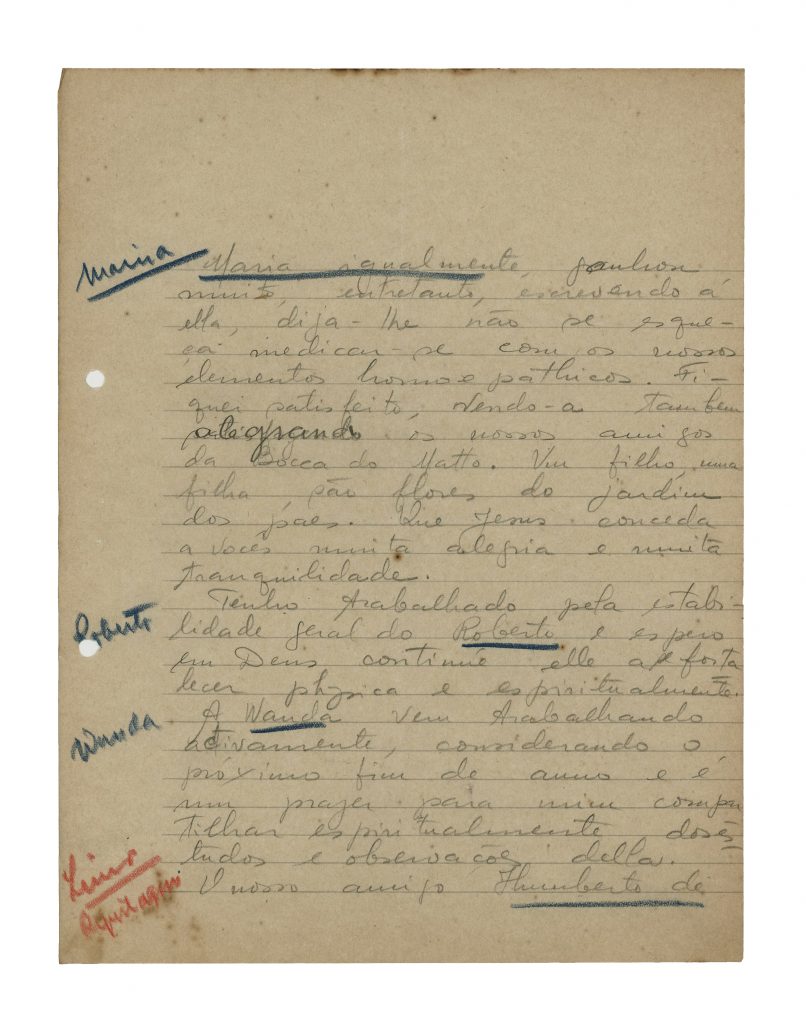 Marina
Maria igualmente, ganhou
muito, entretanto, escrevendo á
ella, diga-lhe não se esque-
ça medicar-se com os nossos
elementos homoepáthicos. Fi-
quei satisfeito, vendo-a tambem
alegrando os nossos amigos
da Bocca do Matto. Um filho, uma
filha, são flores do jardim
dos paes. Que Jesus conceda
a voces muita alegria e muita
tranquilidade.
Roberto
Tenho trabalhado pela estabi-
lidade geral do Roberto e espero
em Deus continúe elle a se forta
lecer physica e espiritualmente.
Wanda
A Wanda vem trabalhando
activamente, considerando o
próximo fim de anno e é
um prazer para mim compar
tilhar espiritualmente dos es
tudos e observações della.
Livro
O nosso amigo Humberto de